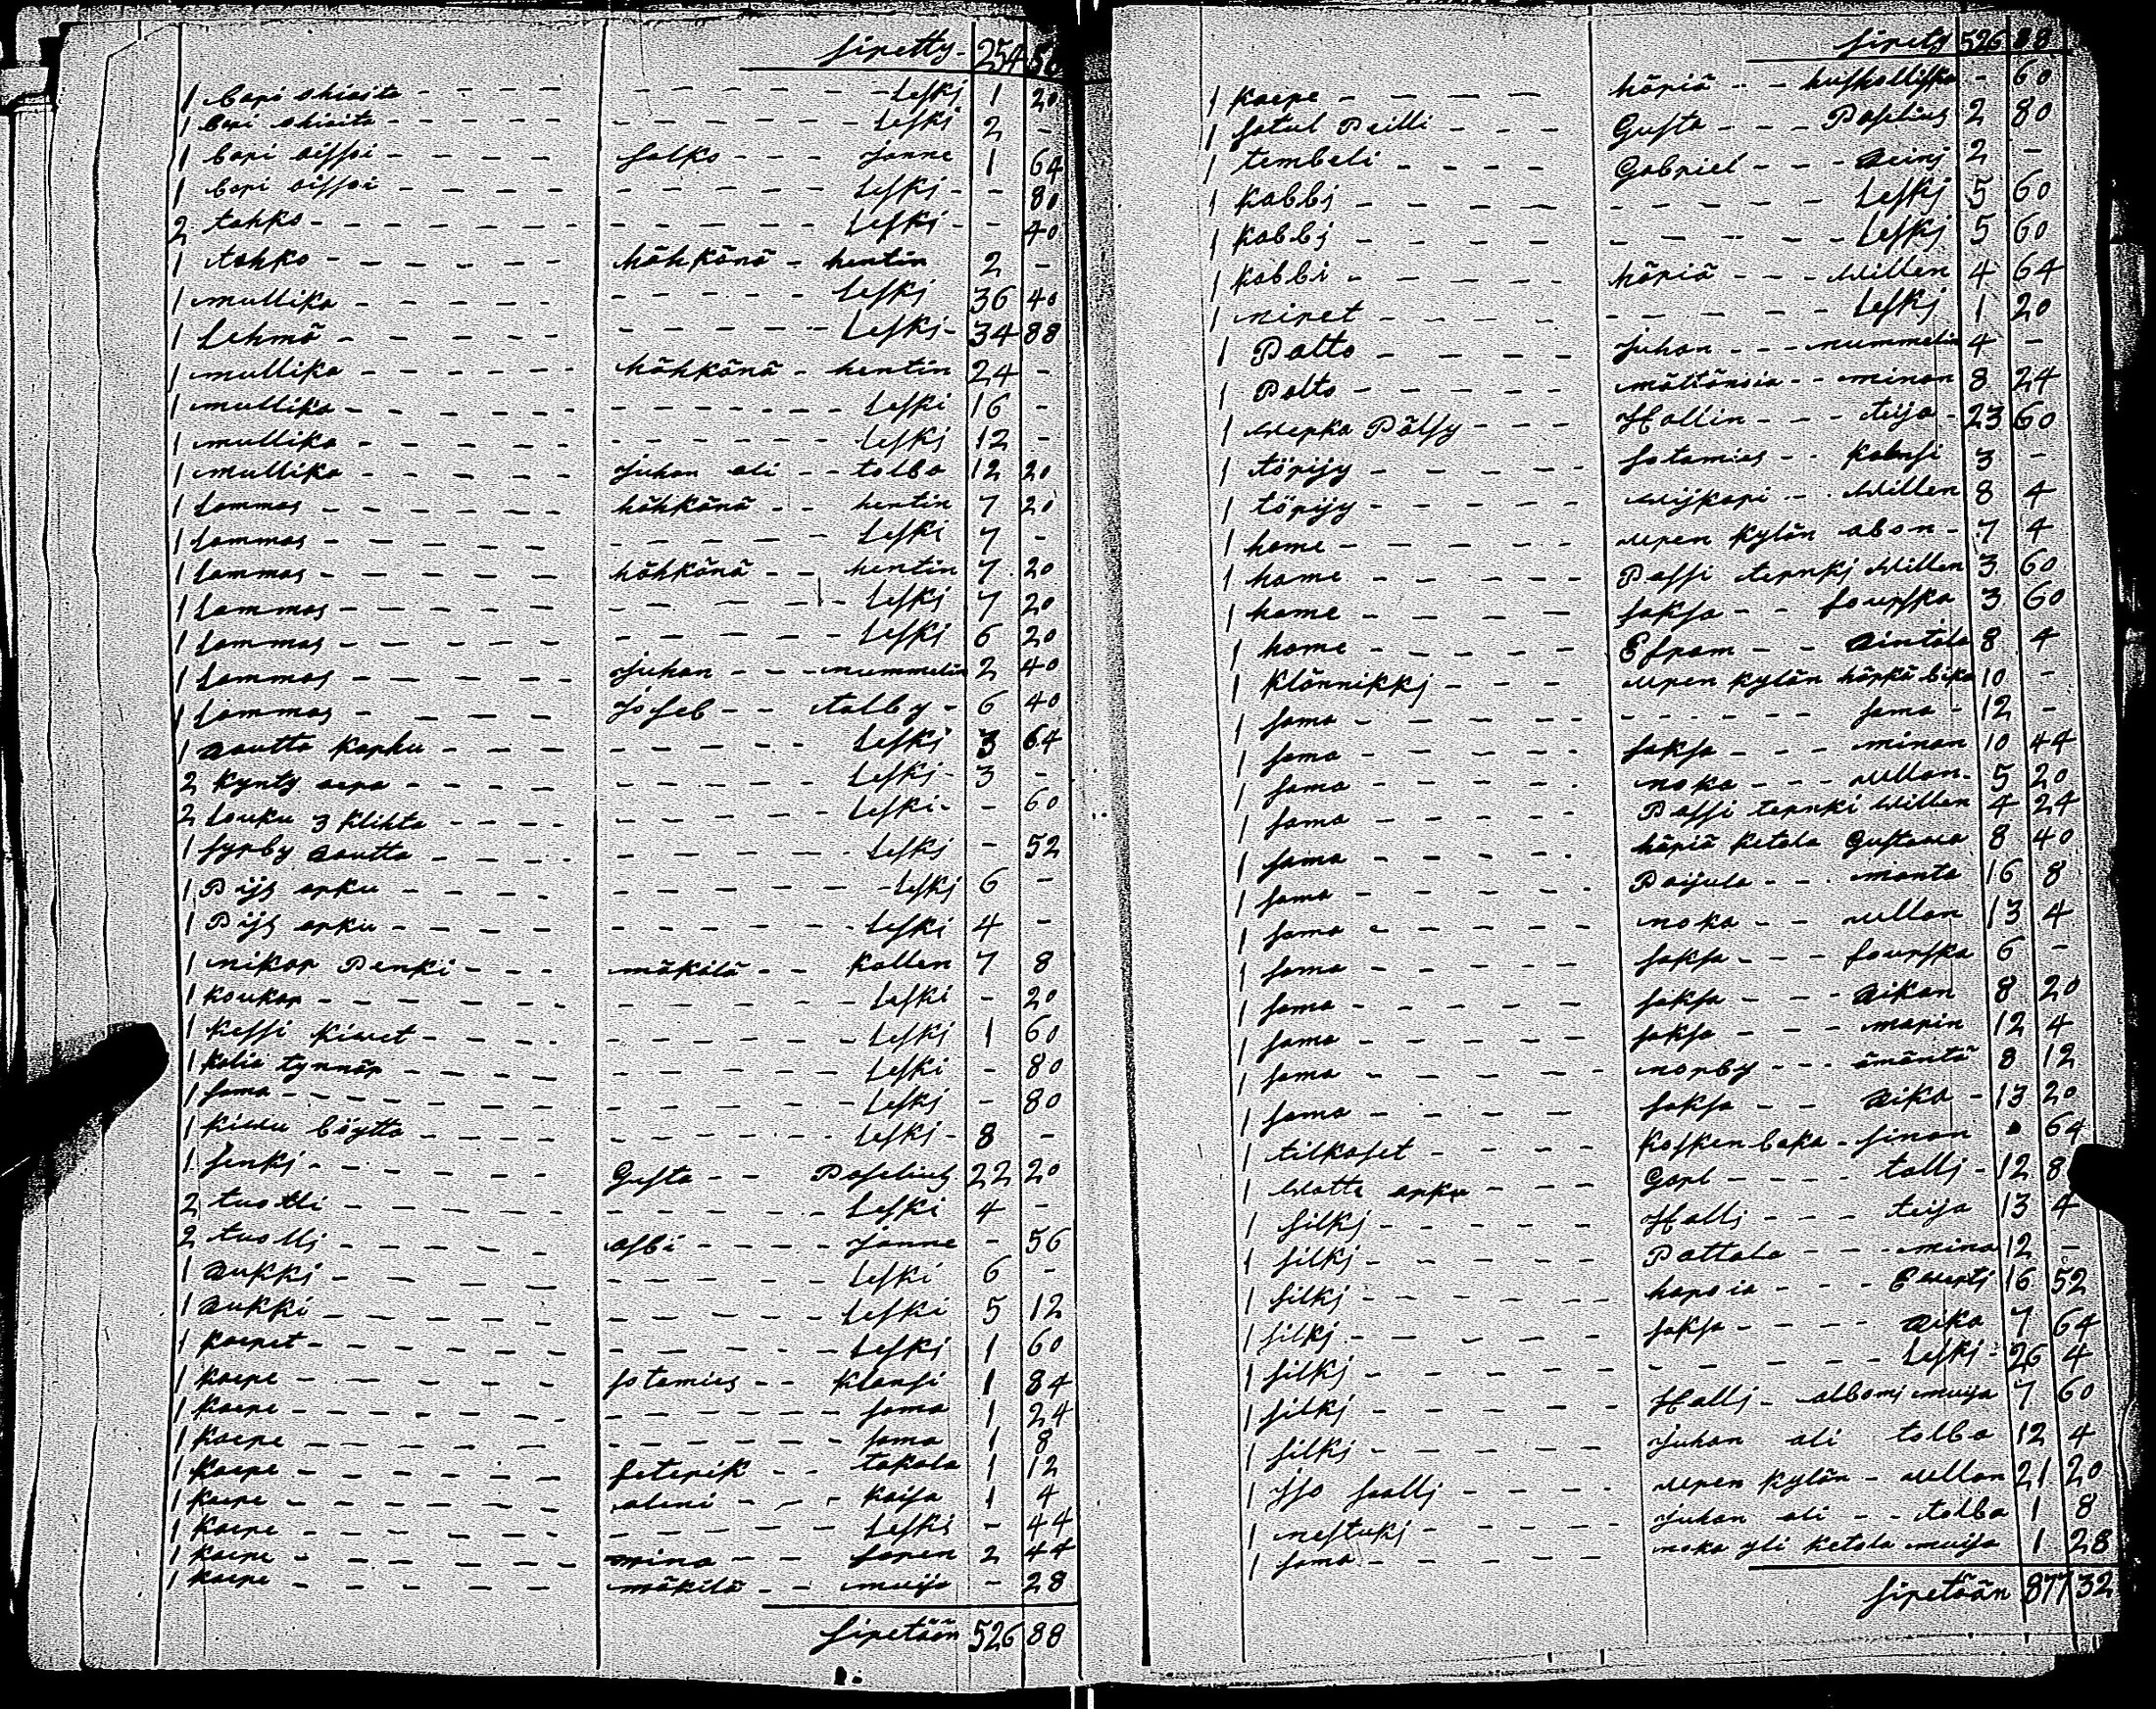 siretty - 254 56
1 bari skiaita - - - - - - Leski 1 20
1 bari skiaita - - - - - - Leski 2 -
1 bari aisoi - - - - salko - - - janne 1 64
1 bari aisoi - - - - - - Leski - - 80
2 tahko - - - - - - Leski - - 40
1 tahko - - - - håhkånå - hentin 2 -
1 mullika - - - - - - Leski 36 40
1 Lehmå - - - - - - Leski - 34 88
1 mullika - - - - håhkånå - hentin 24 -
1 mullika - - - - - - Leski 16 -
1 mullika - - - - - - Leski 12 -
1 mullika - - - - Juhan ali - - tolba 12 20
1 Lammas - - - - håhkånå - - hentin 7 20
1 Lammas - - - - - - Leski 7 -
1 Lammas - - - - håhkånå - - hentin 7 20
1 Lammas - - - - - - Leski 7 20
1 Lammas - - - - - - Leski 6 20
1 Lammas - - - - Juhan - - - nummelin 2 40
1 Lammas - - - - Joseb - - talby - 6 40
1 rautta karhu - - - - - - Leski 3 64
2 kynty aera - - - - - - Leski - 3 -
2 Louku 3 klihta - - - - - - Leski - - 60
1 syrby rautta - - - - - - Leski - 52
1 Rijs arku - - - - - - Leski 6 -
1 Rijs arku - - - - - - Leski 4 -
1 nikar Penki - - - måkilå - - kallen 7 8
1 koukar - - - - - - Leski - 20
1 kessi kiwet - - - - - - Leski 1 60
1 kalia tynnår - - - - - - Leski - 80
1 sama - - - - - - Leski - 80
1 kiwu båytta - - - - - - Leski - 8 -
1 senkj - - - - Gusta - - Roselius 22 20
2 tuolli - - - - - - Leski 4 -
2 tuollj - - - - asbi - - - - janne - 56
1 rukkj - - - - - - Leski 6 -
1 rukki - - - - - - Leski 5 12
1 kaeret - - - - - - Leski 1 60
1 kaere - - - - sotamies - - klansi 1 84
1 kaere - - - - - - sama 1 24
1 kaere - - - - - - sama 1 8
1 kaere - - - - seterik - - takala 1 12
1 kaere - - - - aleni - - - kaisa 1 4
1 kaere - - - - - - Leski - 44
1 kaere - - - - mina - - saren 2 44
1 kaere - - - - måkilå - - muija - 28
siretåån 526 88
sirety 526 88
1 kaere - - - - håriå - - huskolliska - 60
1 satul Peilli - - - Gusta - - - Roselius 2 80
1 tembeli - - - - Gabriel - - - Reinj 2 -
1 kabbj - - - - - - Leski 5 60
1 kabbj - - - - - - Leski 5 60
1 kabbi - - - - håriå - - - Willen 4 64
1 niret - - - - - - Leski 1 20
1 Palto - - - - Juhan - - - nummelin 4 -
1 Palto - - - - måttånoia - - minan 8 24
1 Werka Pålsy - - - Hallin - - - teija - 23 60
1 tårijy - - - - sotamies - - kalnsi 3 -
1 tårijy - - - - Wijkari - - Willen 8 4
1 hame - - - - uren kylån abon - 7 4
1 hame - - - - Passi ternkj Willen 3 60
1 hame - - - - saksa - - sourska 3 60
1 hame - - - - Efram - - Rintala 8 4
1 klånnikkj - - - uren kylån hårkå bika 10 -
1 sama - - - - - - sama - 12 -
1 sama - - - - saksa - - - minan 10 44
1 sama - - - - noka - - - ullan - 5 20
1 sama - - - - Passi ternki Willen 4 24
1 sama - - - - håriå ketala Gustawa 8 40
1 sama - - - - Raijula - - - manta 16 8
1 sama - - - - noka - - ullan 13 4
1 sama - - - - saksa - - - sourska 6 -
1 sama - - - - saksa - - - Rikan 8 20
1 sama - - - - saksa - - - marin 12 4
1 sama - - - - norby - - - åmåntå 8 12
1 sama - - - - saksa - - Rika - 13 20
1 tilkaset - - - - kosken baka - sinan - 64
1 Watte arku - - - Garl - - - - tallj - 12 8
1 silkj - - - - Hallj - - - teija 13 4
1 silkj - - - - Pattala - - - mina 12 -
1 silkj - - - - haroia - - - Ewertj 16 52
1 silkj - - - - saksa - - - - Rika 7 64
1 silkj - - - - - - Leskj - 26 4
1 silkj - - - - Hallj - albomj muija 7 60
1 silkj - - - - Juhan ali tolba 12 4
1 Jso saallj - - - - uren kylån - ullan 21 20
1 nestukj - - - - Juhan ali - - tolba 1 8
1 sama - - - - noka yli ketola muija 1 28
siretåån 877 32